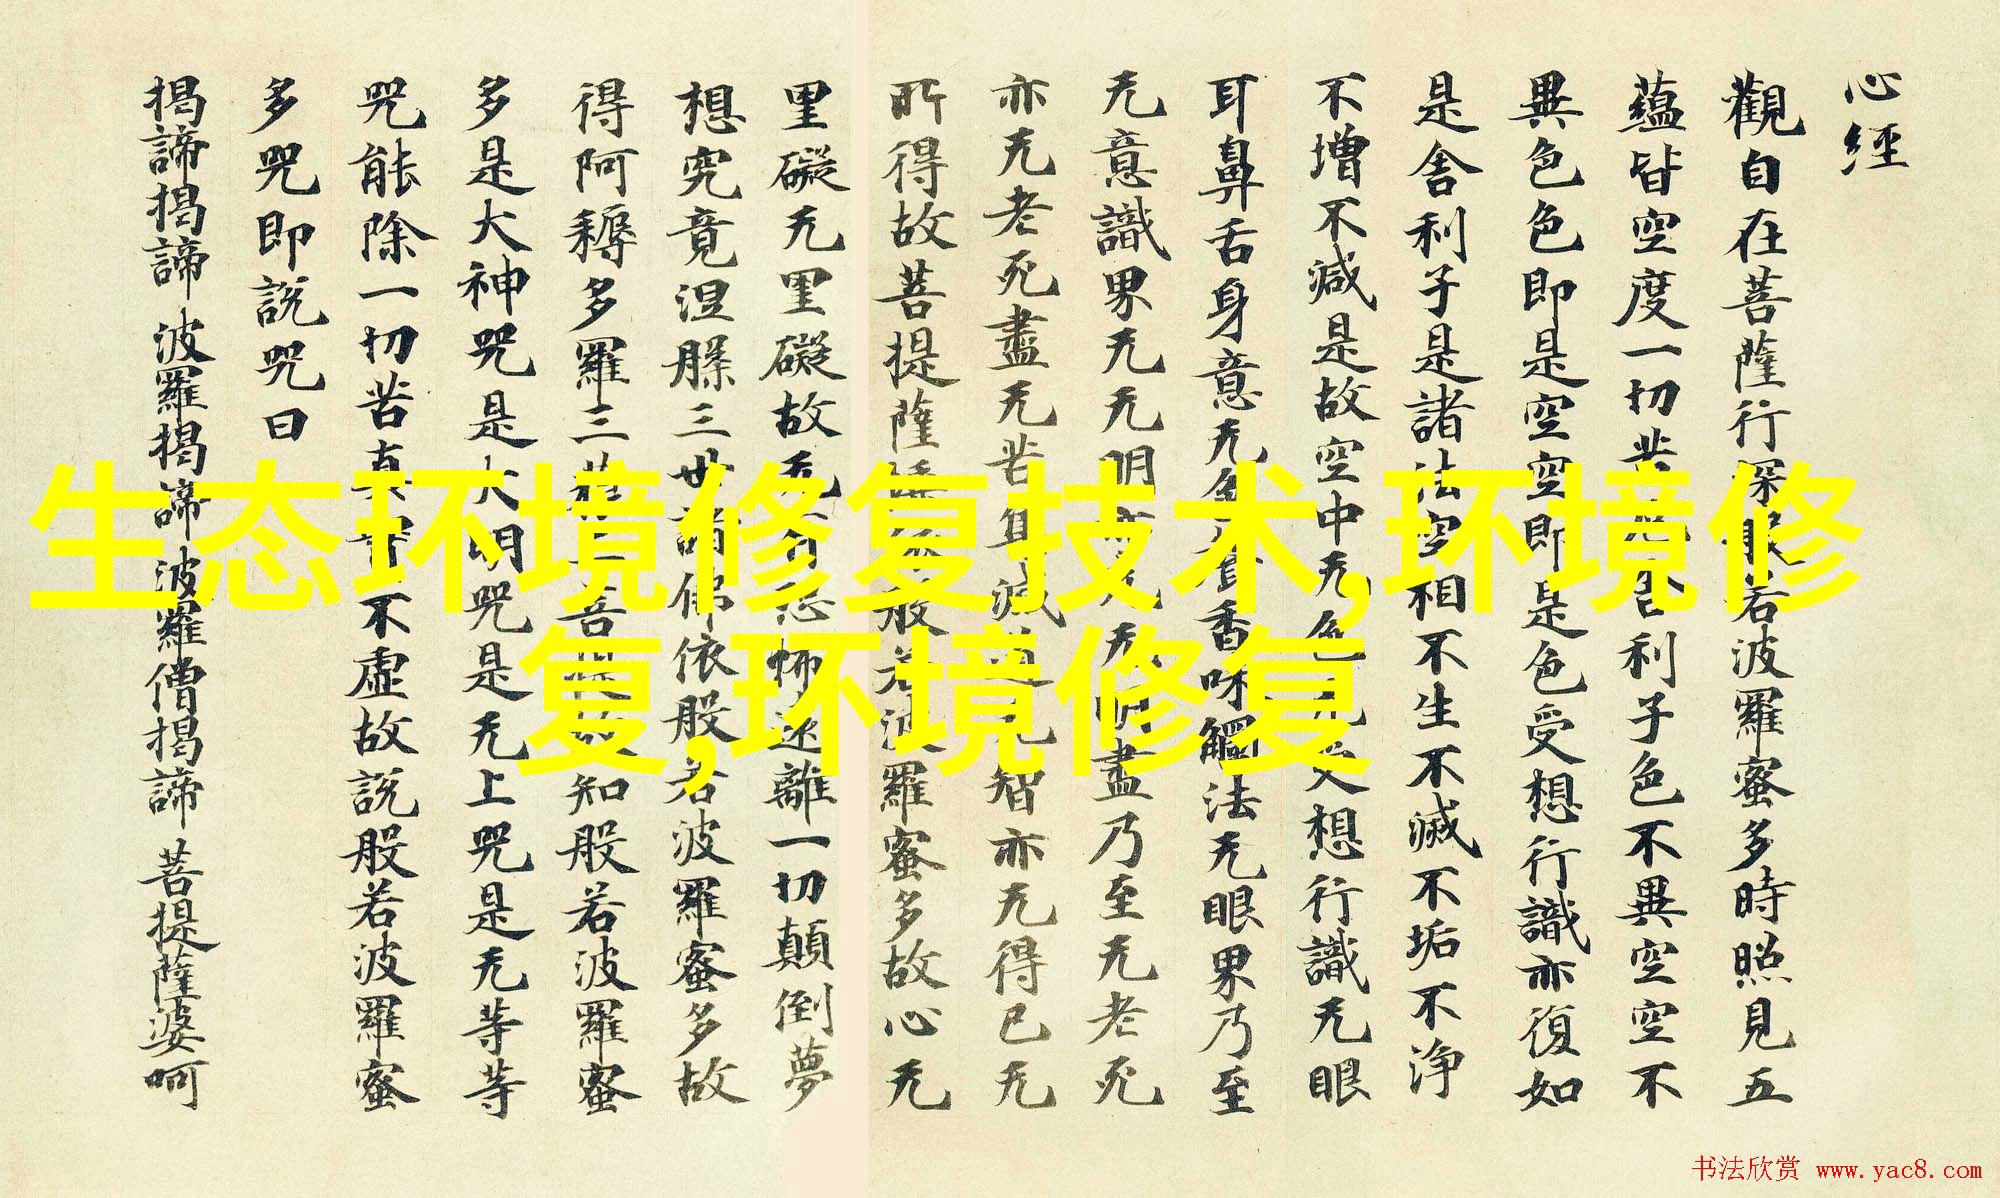 心經
觀自在菩薩行深般若波羅蜜多時照見五
蘊皆空度一切苦厄舍利子色不異空空不
異色色即是空空即是色受想行識亦復如
是舍利子是諸法空相不生不滅不垢不淨
不增不減是故空中无色无受想行識无眼
耳鼻舌身意无色聲香味觸法无眼界乃至
无意識界无无明亦无无明盡乃至无老死
亦无老死盡无苦集滅道无智亦无得已无
所得故菩提薩埵依般若波羅蜜多故心无
罣礙无罣礙故无有恐怖遠離一切顛倒夢
想究竟涅槃三世諸佛依般若波羅蜜多故
得阿耨多羅三藐三菩提故知般若波羅蜜
多是大神咒是大明咒是无上咒是无等等
咒能除一切苦真實不虛故說般若波羅蜜
多咒即說咒曰
揭諦揭諦 波羅揭諦 波羅僧揭諦 菩提薩婆呵
生态环境修复技术,环境修
复,环境修复
书法欣赏 www.yac8.com